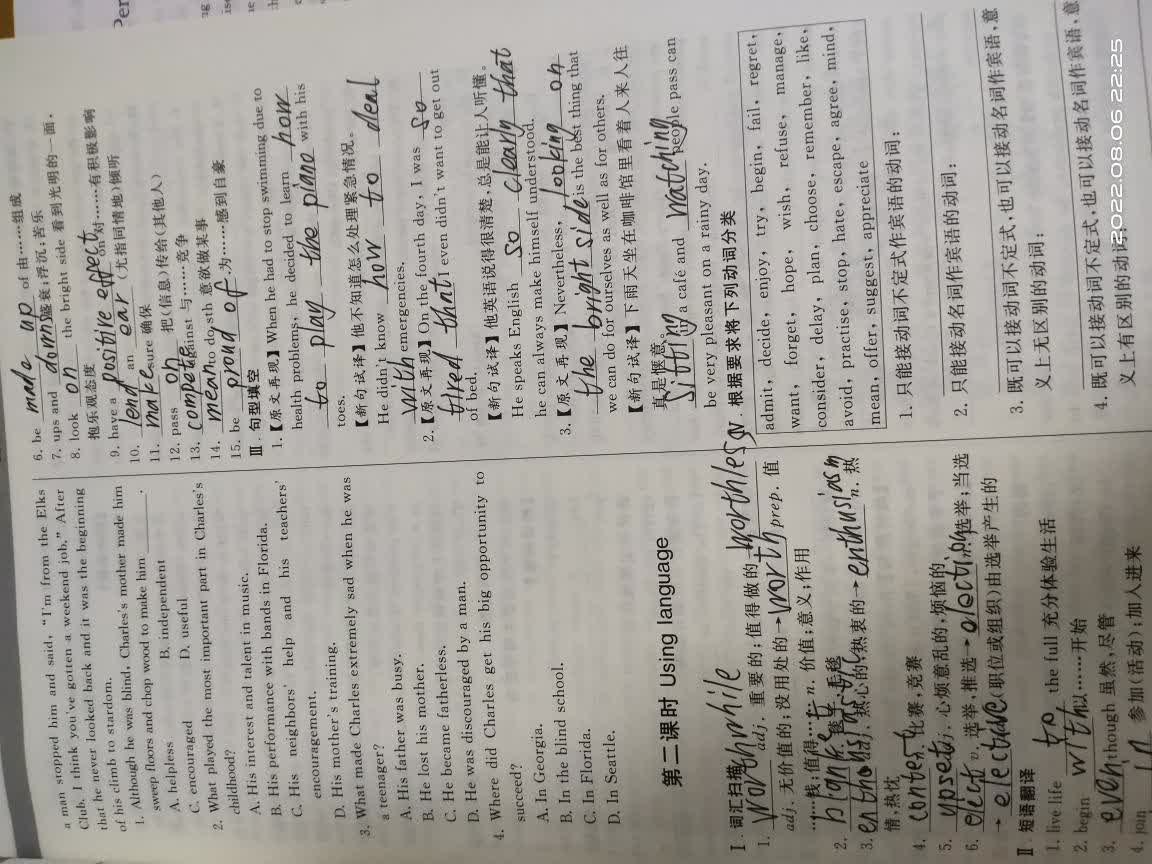 a man stopped him and said, “I'm from the Elks
Club. I think you've gotten a weekend job.” After
that he never looked back and it was the beginning
of his climb to stardom.
1. Although he was blind, Charles's mother made him
sweep floors and chop wood to make him ______.
A. helpless B. independent
C. encouraged D. useful
2. What played the most important part in Charles's
childhood?
A. His interest and talent in music.
B. His performance with bands in Florida.
C. His neighbors' help and his teachers'
encouragement.
D. His mother's training.
3. What made Charles extremely sad when he was
a teenager?
A. His father was busy.
B. He lost his mother.
C. He became fatherless.
D. He was discouraged by a man.
4. Where did Charles get his big opportunity to
succeed?
A. In Georgia.
B. In the blind school.
C. In Florida.
D. In Seattle.
第二课时 Using language
Ⅰ 词汇扫描
1. worthwhile adj. 重要的;值得做的→worthless
adj. 无价值的;没用处的→worth prep. 值
……钱;值得…… n. 价值;意义;作用
2. blanket
3. enthusiastic adj. 热心的;热衷的→enthusiasm n. 热
情,热忱
4. contest 比赛,竞赛
5. upset adj. 心烦意乱的,烦恼的
6. elect v. 选举,推选→election n. 选举;当选
→ elective (职位或组织)由选举产生的
Ⅱ 短语翻译
1. live life to the full 充分体验生活
2. begin with 以……开始
3. even though 虽然,尽管
4. join in 参加(活动);加入进来
6. be made up of 由……组成
7. ups and downs 盛衰;浮沉;苦乐
8. look on the bright side 看到光明的一面,
抱乐观态度
9. have a positive effect on 对……有积极影响
10. lend an ear (尤指同情地)倾听
11. make sure 确保
12. pass on 把(信息)传给(其他人)
13. compete against 与……竞争
14. mean to do sth 意欲做某事
15. be proud of 为……感到自豪
Ⅲ 句型填空
1.【原文再现】When he had to stop swimming due to
health problems, he decided to learn how
to play the piano with his
toes.
【新句试译】他不知道怎么处理紧急情况。
He didn't know how to deal
with emergencies.
2.【原文再现】On the fourth day, I was so
tired that I even didn't want to get out
of bed.
【新句试译】他英语说得很清楚,总是能让人听懂。
He speaks English so clearly that
he can always make himself understood.
3.【原文再现】Nevertheless, looking on
the bright side is the best thing that
we can do for ourselves as well as for others.
【新句试译】下雨天坐在咖啡馆里看着人来人往
真是惬意。
Sitting in a café and watching people pass can
be very pleasant on a rainy day.
Ⅳ. 根据要求将下列动词分类
admit, decide, enjoy, try, begin, fail, regret,
want, forget, hope, wish, refuse, manage,
consider, delay, plan, choose, remember, like,
avoid, practise, stop, hate, escape, agree, mind,
mean, offer, suggest, appreciate
1. 只能接动词不定式作宾语的动词:
2. 只能接动名词作宾语的动词:
3. 既可以接动词不定式,也可以接动名词作宾语,意
义上无区别的动词:
4. 既可以接动词不定式,也可以接动名词作宾语,意
义上有区别的动词
2022.08.06 22:25